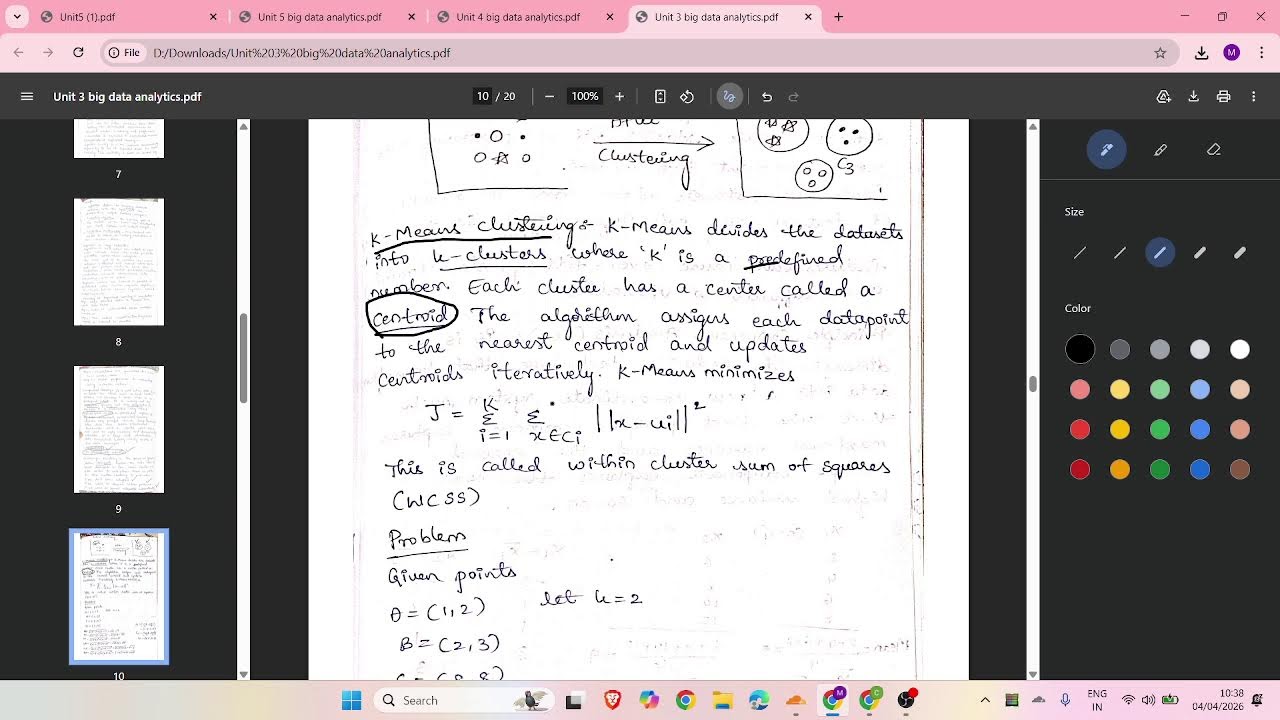 Unit5 (1).pdf
Unit 5 big data analytics.pdf
Unit 4 big data analytics.pdf
Unit 3 big data analytics.pdf
File
D:/Downloads/Unit%203%20big%20data%20analytics.pdf
M
Unit 3 big data analytics.pdf
10 / 20
7
8
9
10
Clustering
C3
K-Means divides the datasets
to K cluster where 'K' is a predefined
number. Each cluster has a center called a
centroid The algorithm assigns each datapoint
to the nearest centroid and updates
K-Means minimizes
J =
This is called within cluster sum of squares
(WCSS)
Problem
Given points
= (1,2) K=2
B = (2,3)
Size
Color
Search
ENG
IN
10:38
04/04/2026